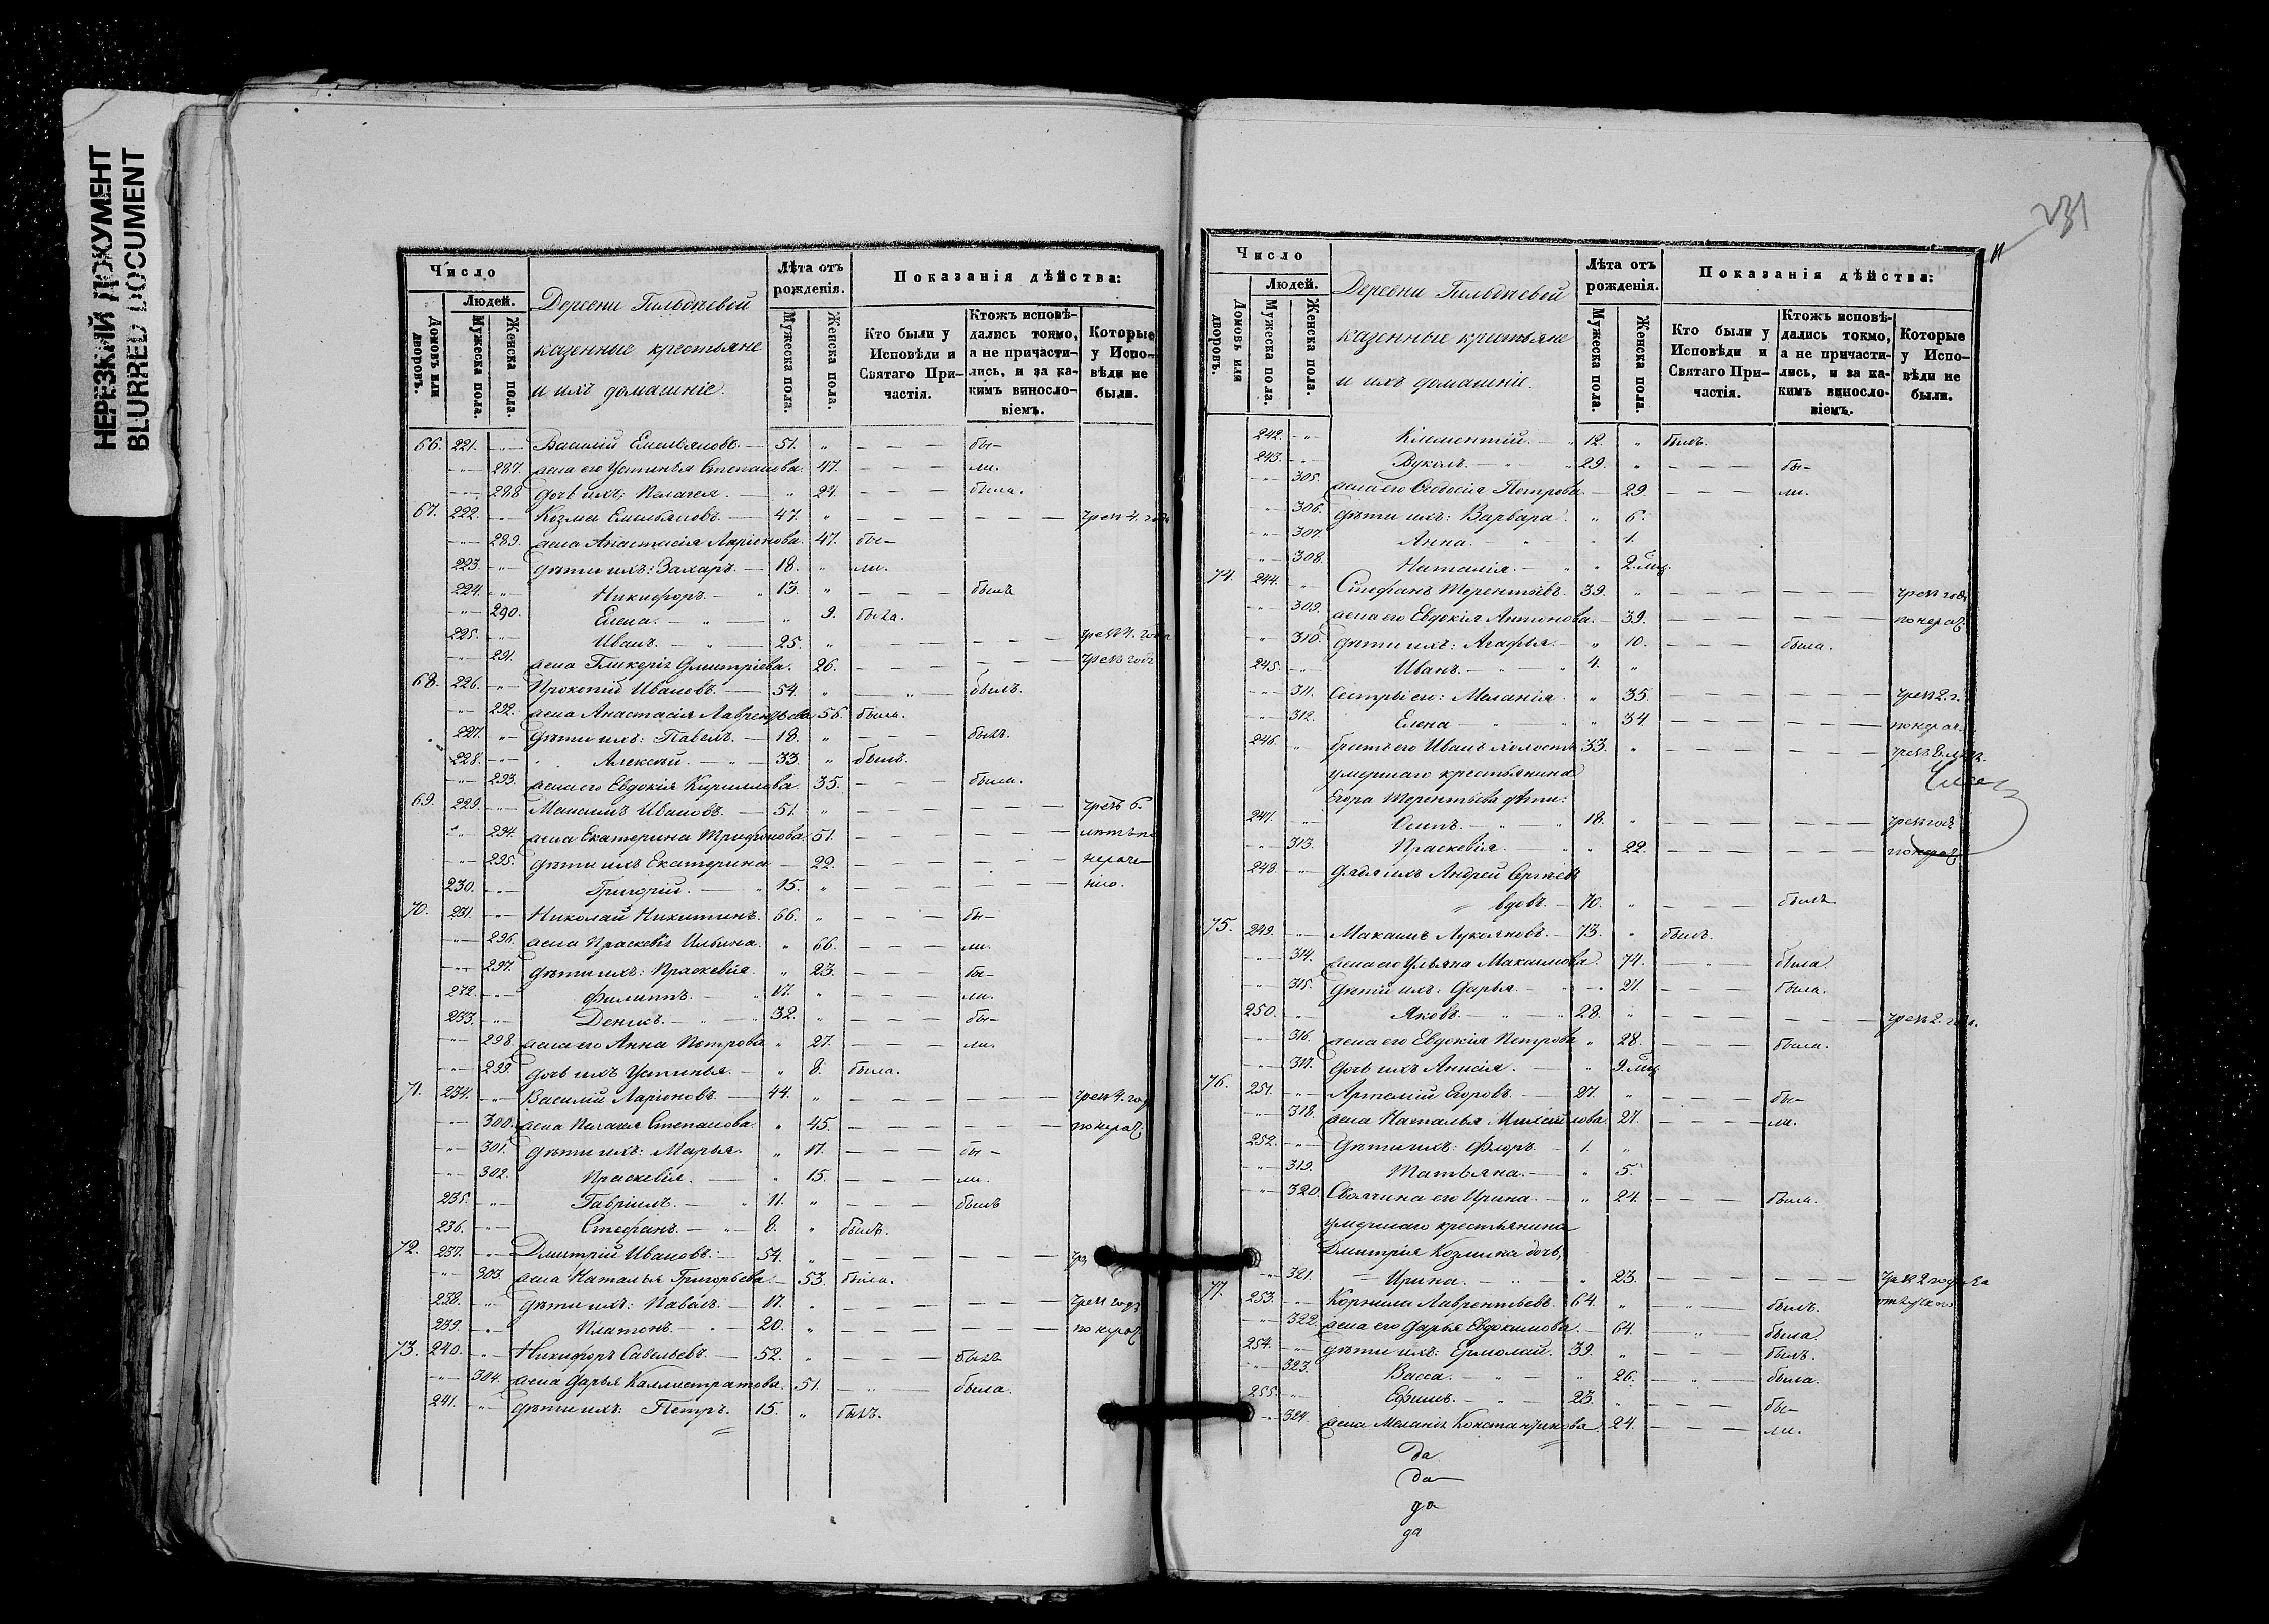 НЕРЕЗКИЙ ДОКУМЕНТ
BLURRED DOCUMENT
Число
Людей.
Домовъ или дворовъ.
Мужеска пола.
Женска пола.
Деревни Гильдѣевой
казенные крестьяне
и ихъ домашніе.
Лѣта отъ рожденія.
Мужеска пола.
Женска пола.
Показанія дѣйства:
Кто были у Исповѣди и Святаго Причастія.
Ктожъ исповѣдались токмо, а не причастились, и за какимъ винословіемъ.
Которые у Исповѣди не были.
66. 221. -"- Василій Емельяновъ. — 51. " — — — бы-
-"- 287. жена его Устинья Степанова. 47. — — — ли.
-"- 288 дочь ихъ; Пелагея. — " 24. — — — была.
67. 222. -"- Козма Емельяновъ. — 47. " — — — — — — чрез 4. года
-"- 289. жена Анастасія Ларіонова. 47. бы-
223. -"- дѣти ихъ: Захаръ. — 18. " ли.
224. -"- Никифоръ. — " 13. " — — — былъ
-"- 290. Елена. — " — " 9. была.
225. -"- Иванъ. — " — 25. " — — — чрез 4. года
-"- 291. жена Гликерія Дмитріева. 26. — — — — — — чрез годъ
68. 226. -"- Прокопій Ивановъ. — 54. " — " — былъ.
-"- 292. жена Анастасія Лаврентьева 56. была.
227. -"- дѣти ихъ: Павелъ. — 18. " — — — былъ.
228. -"- Алексѣй. — " — 33. " былъ.
-"- 293. жена его Евдокія Кириллова. 35. — — — была.
69. 229. -"- Максимъ Ивановъ. — 51. " — — — — — — чрезъ 6.
-"- 294. жена Екатерина Трифонова 51. — — — — — — лѣтъ по
-"- 295. дѣти ихъ Екатерина — 22. — — — — — — нераче-
230. -"- Григорій. — " 15. " — — — — — — нію.
70. 231. -"- Николай Никитинъ. 66. " — — — бы-
-"- 296. жена Праскевія Ильина. " 66. — — — ли.
-"- 297. дѣти ихъ: Праскевія. " 23. — — — бы-
232. -"- Филиппъ. — " 17. " — — — ли.
233. -"- Денисъ. — " — " 32. " — — — бы-
-"- 298. жена его Анна Петрова " 27. — — — ли.
-"- 299. дочь ихъ Устинья. — " 8. была.
71. 234. -"- Василій Ларіоновъ. — 44. " — — — — — — чрез 4. год
-"- 300. жена Пелагея Степанова. " 45. — — — — — — по нерач.
-"- 301. дѣти ихъ: Марья. " 17. — — — бы-
-"- 302. Праскевія. — " 15. — — — ли.
235. -"- Гавріилъ. — " 11. " — — — былъ
236. -"- Стефанъ. — " — 8. " былъ.
72. 237. -"- Дмитрій Ивановъ. — 54. " — — — — — —
-"- 303. жена Наталья Григорьева. — 53. была.
238. -"- дѣти ихъ: Павелъ. — 17. " — — — — — — чрез годъ
239. -"- Платонъ. — " — 20. " — — — — — — по нерач.
73. 240. -"- Никифоръ Савельевъ. — 52. " — — — былъ
-"- 304. жена Дарья Каллистратова. 51. — " — была.
241. -"- дѣти ихъ: Петръ. 15. " былъ.
231
Число
Людей.
Домовъ или дворовъ.
Мужеска пола.
Женска пола.
Деревни Гильдѣевой
казенные крестьяне
и ихъ домашніе.
Лѣта отъ рожденія.
Мужеска пола.
Женска пола.
Показанія дѣйства:
Кто были у Исповѣди и Святаго Причастія.
Ктожъ исповѣдались токмо, а не причастились, и за какимъ винословіемъ.
Которые у Исповѣди не были.
242. -"- Климентій. — " 12. " былъ.
243. -"- Вуколъ. — " — " 29. " — — — бы-
-"- 305. жена его Ѳедосія Петрова. — 29. — — — ли.
-"- 306. дѣти ихъ: Варвара. " 6.
-"- 307. Анна. — " — " 1.
-"- 308. Наталія. — " " 2. мц.
74. 244. -"- Стефанъ Терентьевъ. 39. " — — — — — — чрез годъ
-"- 309. жена его Евдокія Антонова. — 39. — — — — — — по нерач.
-"- 310. дѣти ихъ: Агафья. " 10. — — — была.
245. -"- Иванъ. — " — " 4. "
-"- 311. Сестры его: Меланія. " 35. — — — — — — чрез 2. г.
-"- 312. Елена — " — " 34. — — — — — — по нерач.
246. -"- братъ его Иванъ холостъ 33. " — — — — — —
умершаго крестьянина
Егора Терентьева дѣти:
247. -"- Осипъ. — " — " 18. " — — — — — — чрез годъ
-"- 313. Праскевія. — " 22. — — — — — — по нерач.
248. -"- дядя ихъ Андрей Сергѣевъ
вдовъ. — 70. " — — — былъ
75. 249. -"- Максимъ Лукояновъ. — 73. " былъ.
-"- 314. жена его Ульяна Максимова. 74. — " — была.
-"- 315. дѣти ихъ: Дарья. — " — 21. — — — была.
250. -"- Яковъ. — " — " 28. " — — — — — — чрез 2. года.
-"- 316. жена его Евдокія Петрова " 28. — — — была.
-"- 317. дочь ихъ Анисія. — " 9. мц.
76. 251. -"- Артемій Егоровъ. — 27. " — — — бы-
-"- 318. жена Наталья Михайлова. 27. — — — ли.
252. -"- дѣти ихъ: Флоръ. — 1. "
-"- 319. Татьяна. — " 5.
-"- 320. Своячина его Ирина. — " 24. — — — была.
умершаго крестьянина
Дмитрія Козмина дочь,
-"- 321. — Ирина. — " — " 23. — — — — — — чрез 2 года за
77. 253. -"- Корнила Лаврентьевъ. 64. " " — былъ. отлучкою
-"- 322. жена его Дарья Евдокимова. — 64. — " — была.
254. -"- дѣти ихъ: Ермолай. 39. " — — — былъ.
-"- 323. Васса. — " — " 26. — " — была.
255. -"- Ефимъ. — " — 23. " — — — бы-
-"- 324. жена Меланія Константинова. 24. — — — ли.
да
да
да
да